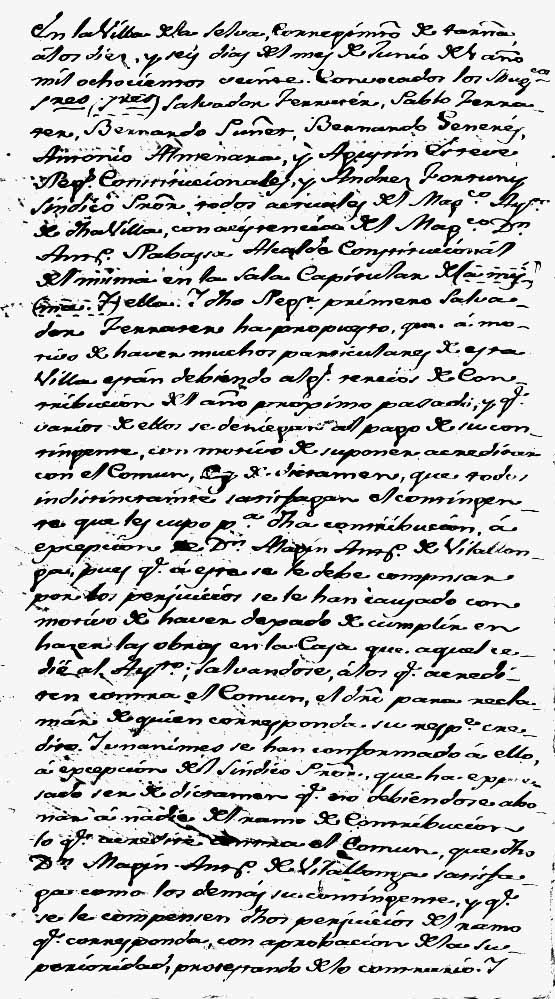 En la Villa de la Selva, Corregimto de Tarrna
á los diez, y seis dias del mes de Junio del año
mil ochocientos veinte. Convocados los Magcos
Sres (Sres) Salvador Ferratér, Pablo Ferra-
ter, Bernardo Suñer, Bernardo Generés,
Antonio Almenara, y Agustin Esteve
Regs Constitucionales, y Andres Fortuny
Sindico Pror, todos actuales del Magco Aytto
de dha Villa, con asistencia del Magco Dn
Anto Rabassa Alcalde Constitucional
del mismo en la Sala Capitular de la mis-
ma. Y ella. Y dho Regr primero Salva-
dor Ferrater ha propuesto, que á mo-
tivo de haver muchos particulares de esta
Villa están debiendo algs tercios de Con-
tribución del año próximo pasado, y qe
varios de ellos se deniegan al pago de su con-
tingente, con motivo de suponer acreditar
con el Comun, Es de dictamen, que todos
indistinctamte satisfagan el contingen-
te que les cupo pa dha contribución, á
excepción de Dn Magin Anto de Vilallon-
ga, pues qe á este se le debe compensar
por los perjuicios se le han causado con
motivo de haver dexado de cumplir en
hazer las obras en la Casa que aquel ce-
dió al Aytto; salvandose, á los qe acredi-
ten contra el Comun, el dro para recla-
mar de quien corresponda su respvo cre-
dito. Y unanimes se han conformado á ello,
á excepción del Sindico Pror, que ha expre-
sado ser de dictamen qe no debiendose abo-
nar á nadie del ramo de Contribución
lo qe acredite contra el Comun, que dho
Dn Magin Anto de Vilallonga satisfa-
ga como los demas su contingente, y qe
se le compensen dhos perjuicios del ramo
qe corresponda, con aprobación de la Su-
perioridad, protestando de lo contrario. Y